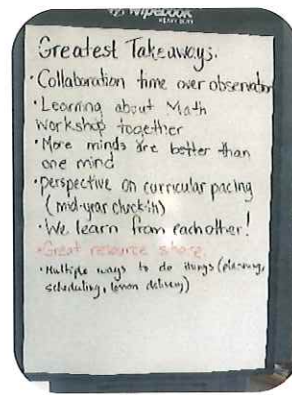 Wipebook
Greatest Takeaways.
• Collaboration time over observation
• Learning about Math
Workshop together
• More minds are better than
one mind
• perspective on curricular pacing
(mid-year check-in)
• We learn from each other!
• Great resource share.
• Multiple ways to do things (planning,
scheduling, lesson delivery)